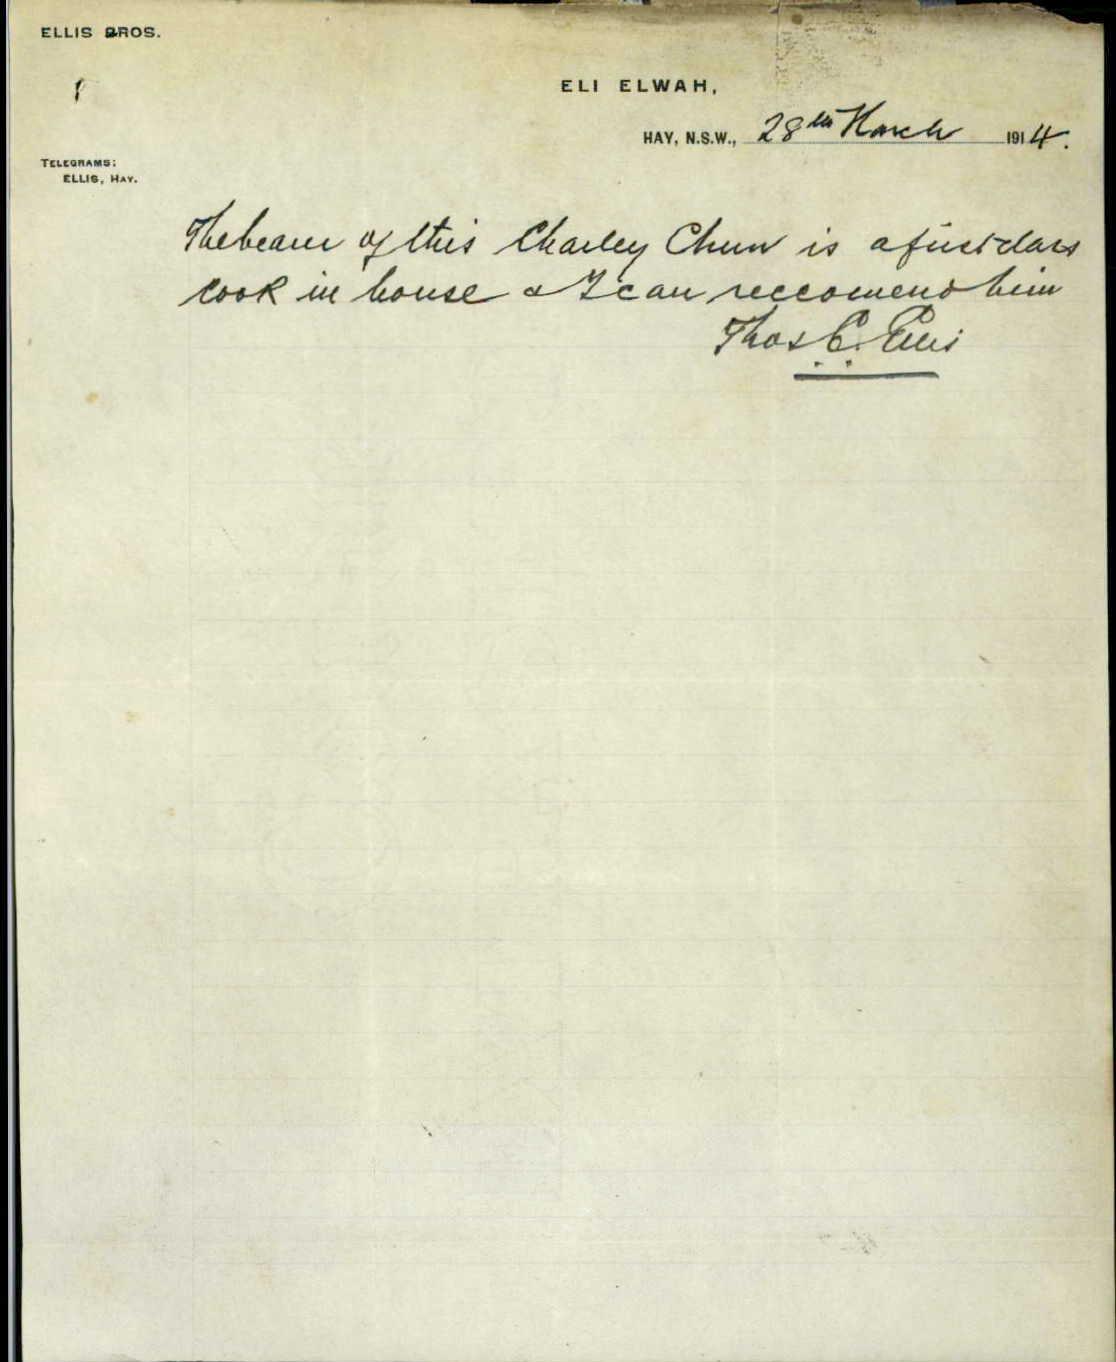 ELLIS BROS.
ELI ELWAH,
HAY, N.S.W., 28th March 1914.
TELEGRAMS:
ELLIS, HAY.
The bearer of this Charley Chun is a first class
cook in house & I can reccomend him
Thos C. Ellis